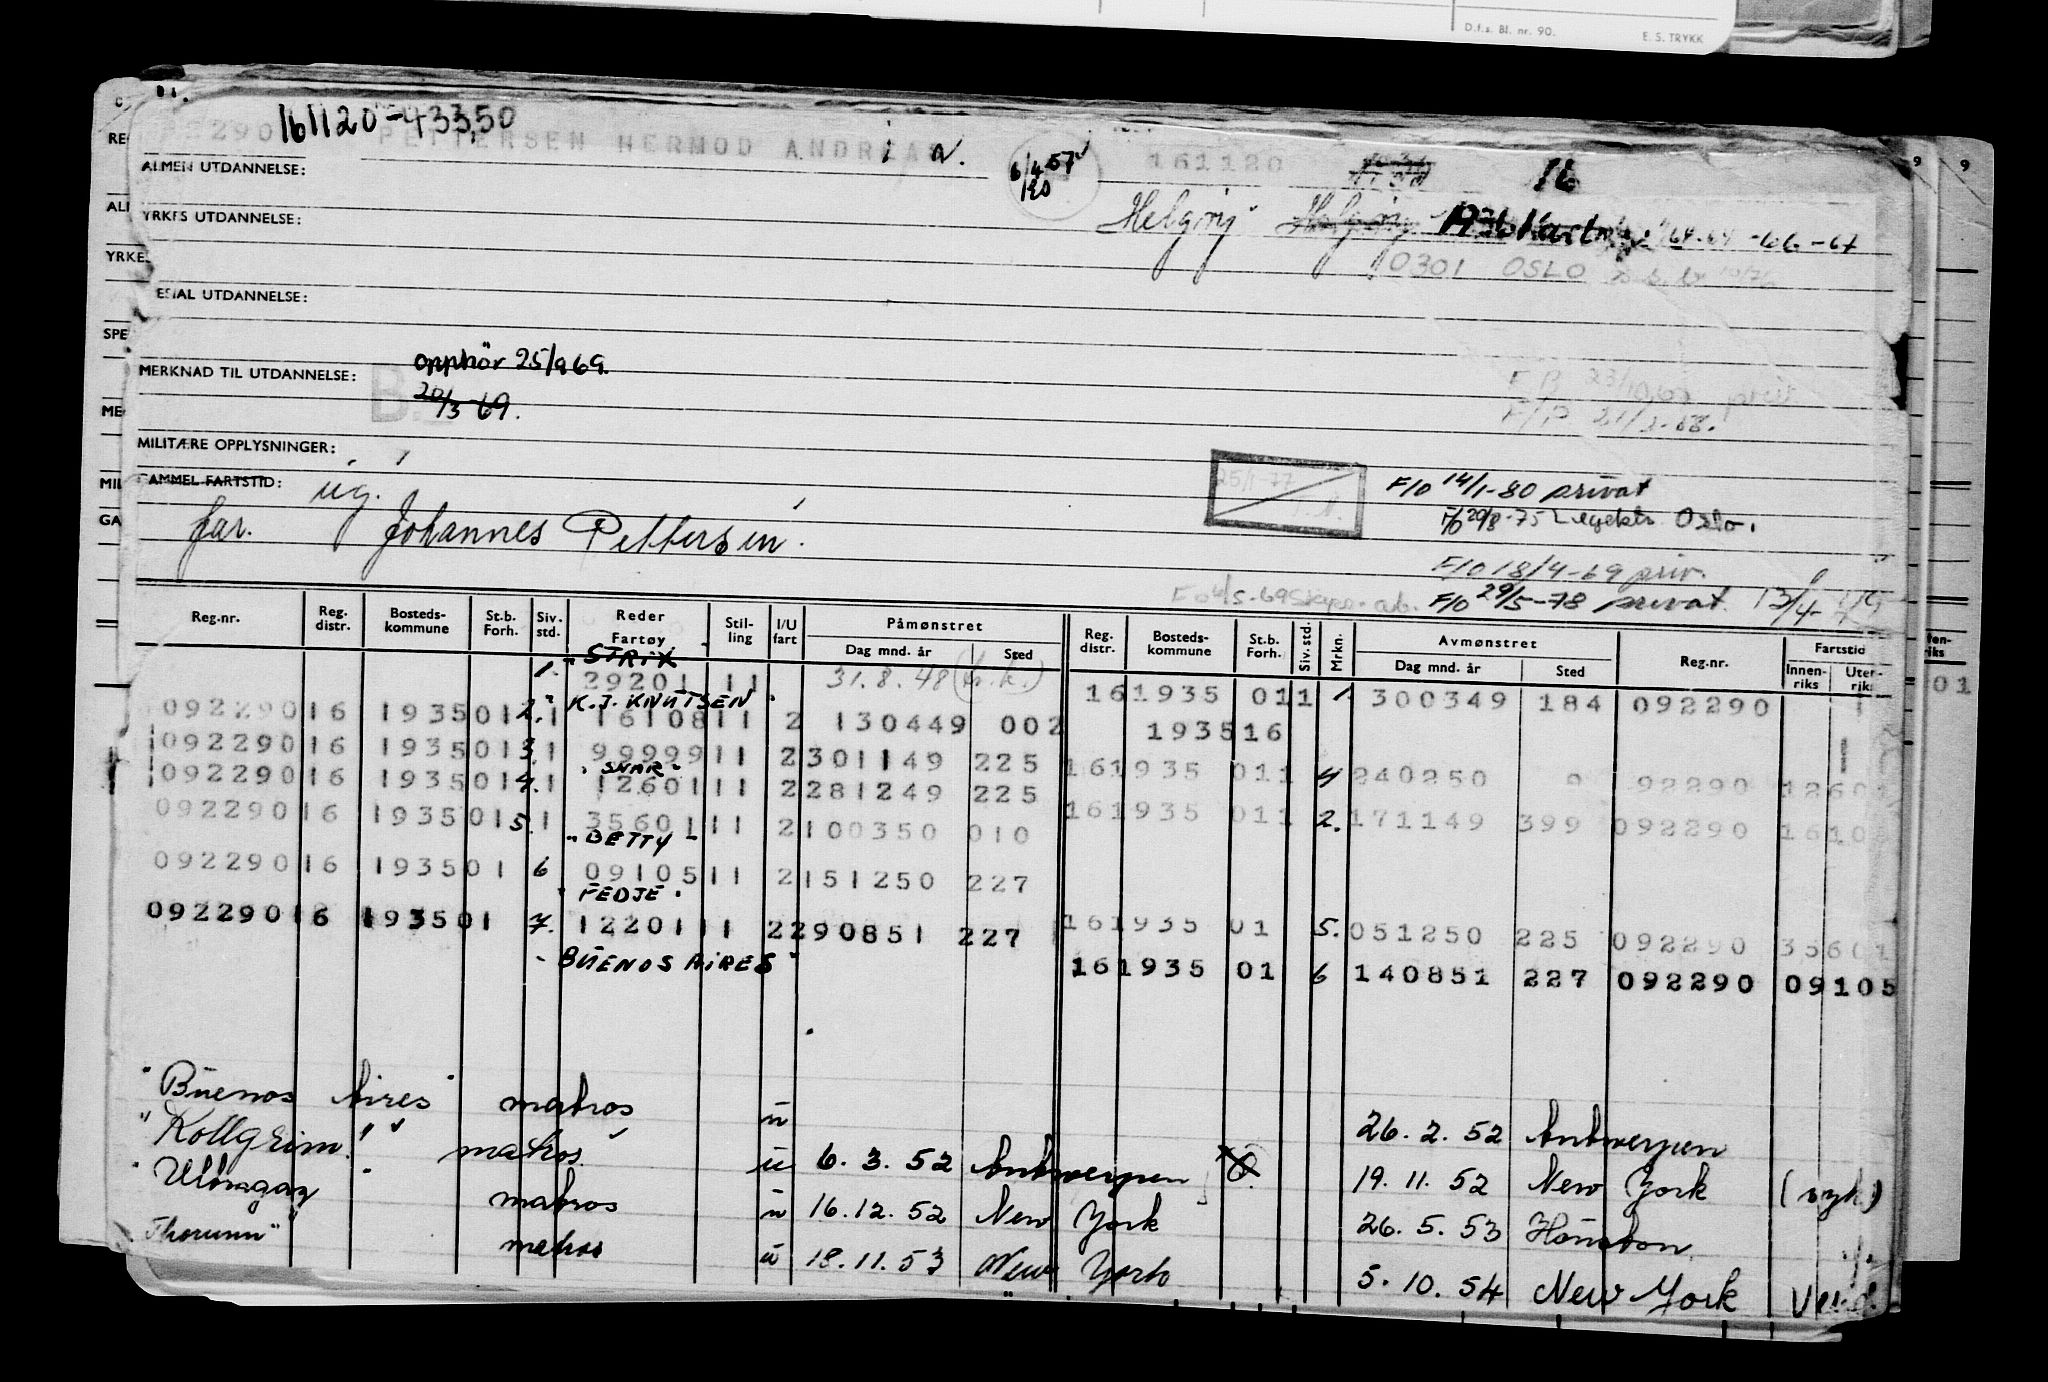 D.f.s. Bl. nr. 90. E. S. TRYKK
161120-43350
PETTERSEN HERMOD ANDREAS 161120 16
ALMEN UTDANNELSE: 6/4 57
YRKES UTDANNELSE: Helgøy 1936 Karlsøy 64-66-67
0301 OSLO
SPESIAL UTDANNELSE:
opphör 25/9 69.
MERKNAD TIL UTDANNELSE: B.
20/3-69.
F/P 21/3-68.
MILITÆRE OPPLYSNINGER:
GAMMEL FARTSTID: ug. 25/1-77 F/O 14/1-80 privat
far. Johannes Pettersen. F/O 20/8-75 Legekts. Oslo.
F/O 18/4-69 priv.
F/O 29/5-78 privat 13/4-
Reg.nr. Reg. distr. Bosteds-kommune St.b. Forh. Siv. std. Reder Fartøy Stil-ling I/U fart Påmønstret Dag mnd. år Sted Reg. distr. Bosteds-kommune St.b. Forh. Siv. std. Mrkn. Avmønstret Dag mnd. år Sted Reg.nr. Fartstid Innen-riks Uten-riks
"STRIX"
1. 29201 11 31.8.48 161935 011 1. 300349 184 092290
"K.J. KNUTSEN"
092290 16 193501 2. 1 16108 11 2 130449 002 193516
092290 16 193501 3. 1 99999 11 2 301149 225 161935 011 4 240250 92290 12601
"SNAR"
092290 16 193501 4. 1 12601 11 2 281249 225 161935 011 2. 171149 399 092290 16108
092290 16 193501 5. 1 35601 11 2 100350 010
"BETTY"
092290 16 193501 6 09105 11 2 151250 227 161935 01 5. 051250 225 092290 35601
"FEDJE"
092290 16 193501 7. 12201 11 2 290851 227 161935 01 6 140851 227 092290 09105
"BUENOS AIRES"
"Buenos Aires" matros u 26.2.52 Antwerpen
"Kollgrim" matros u 6.3.52 Antwerpen 19.11.52 New York (syk)
"Ultragaz" matros u 16.12.52 New York 26.5.53 Houston
Thorunn" matros u 18.11.53 New York 5.10.54 New York